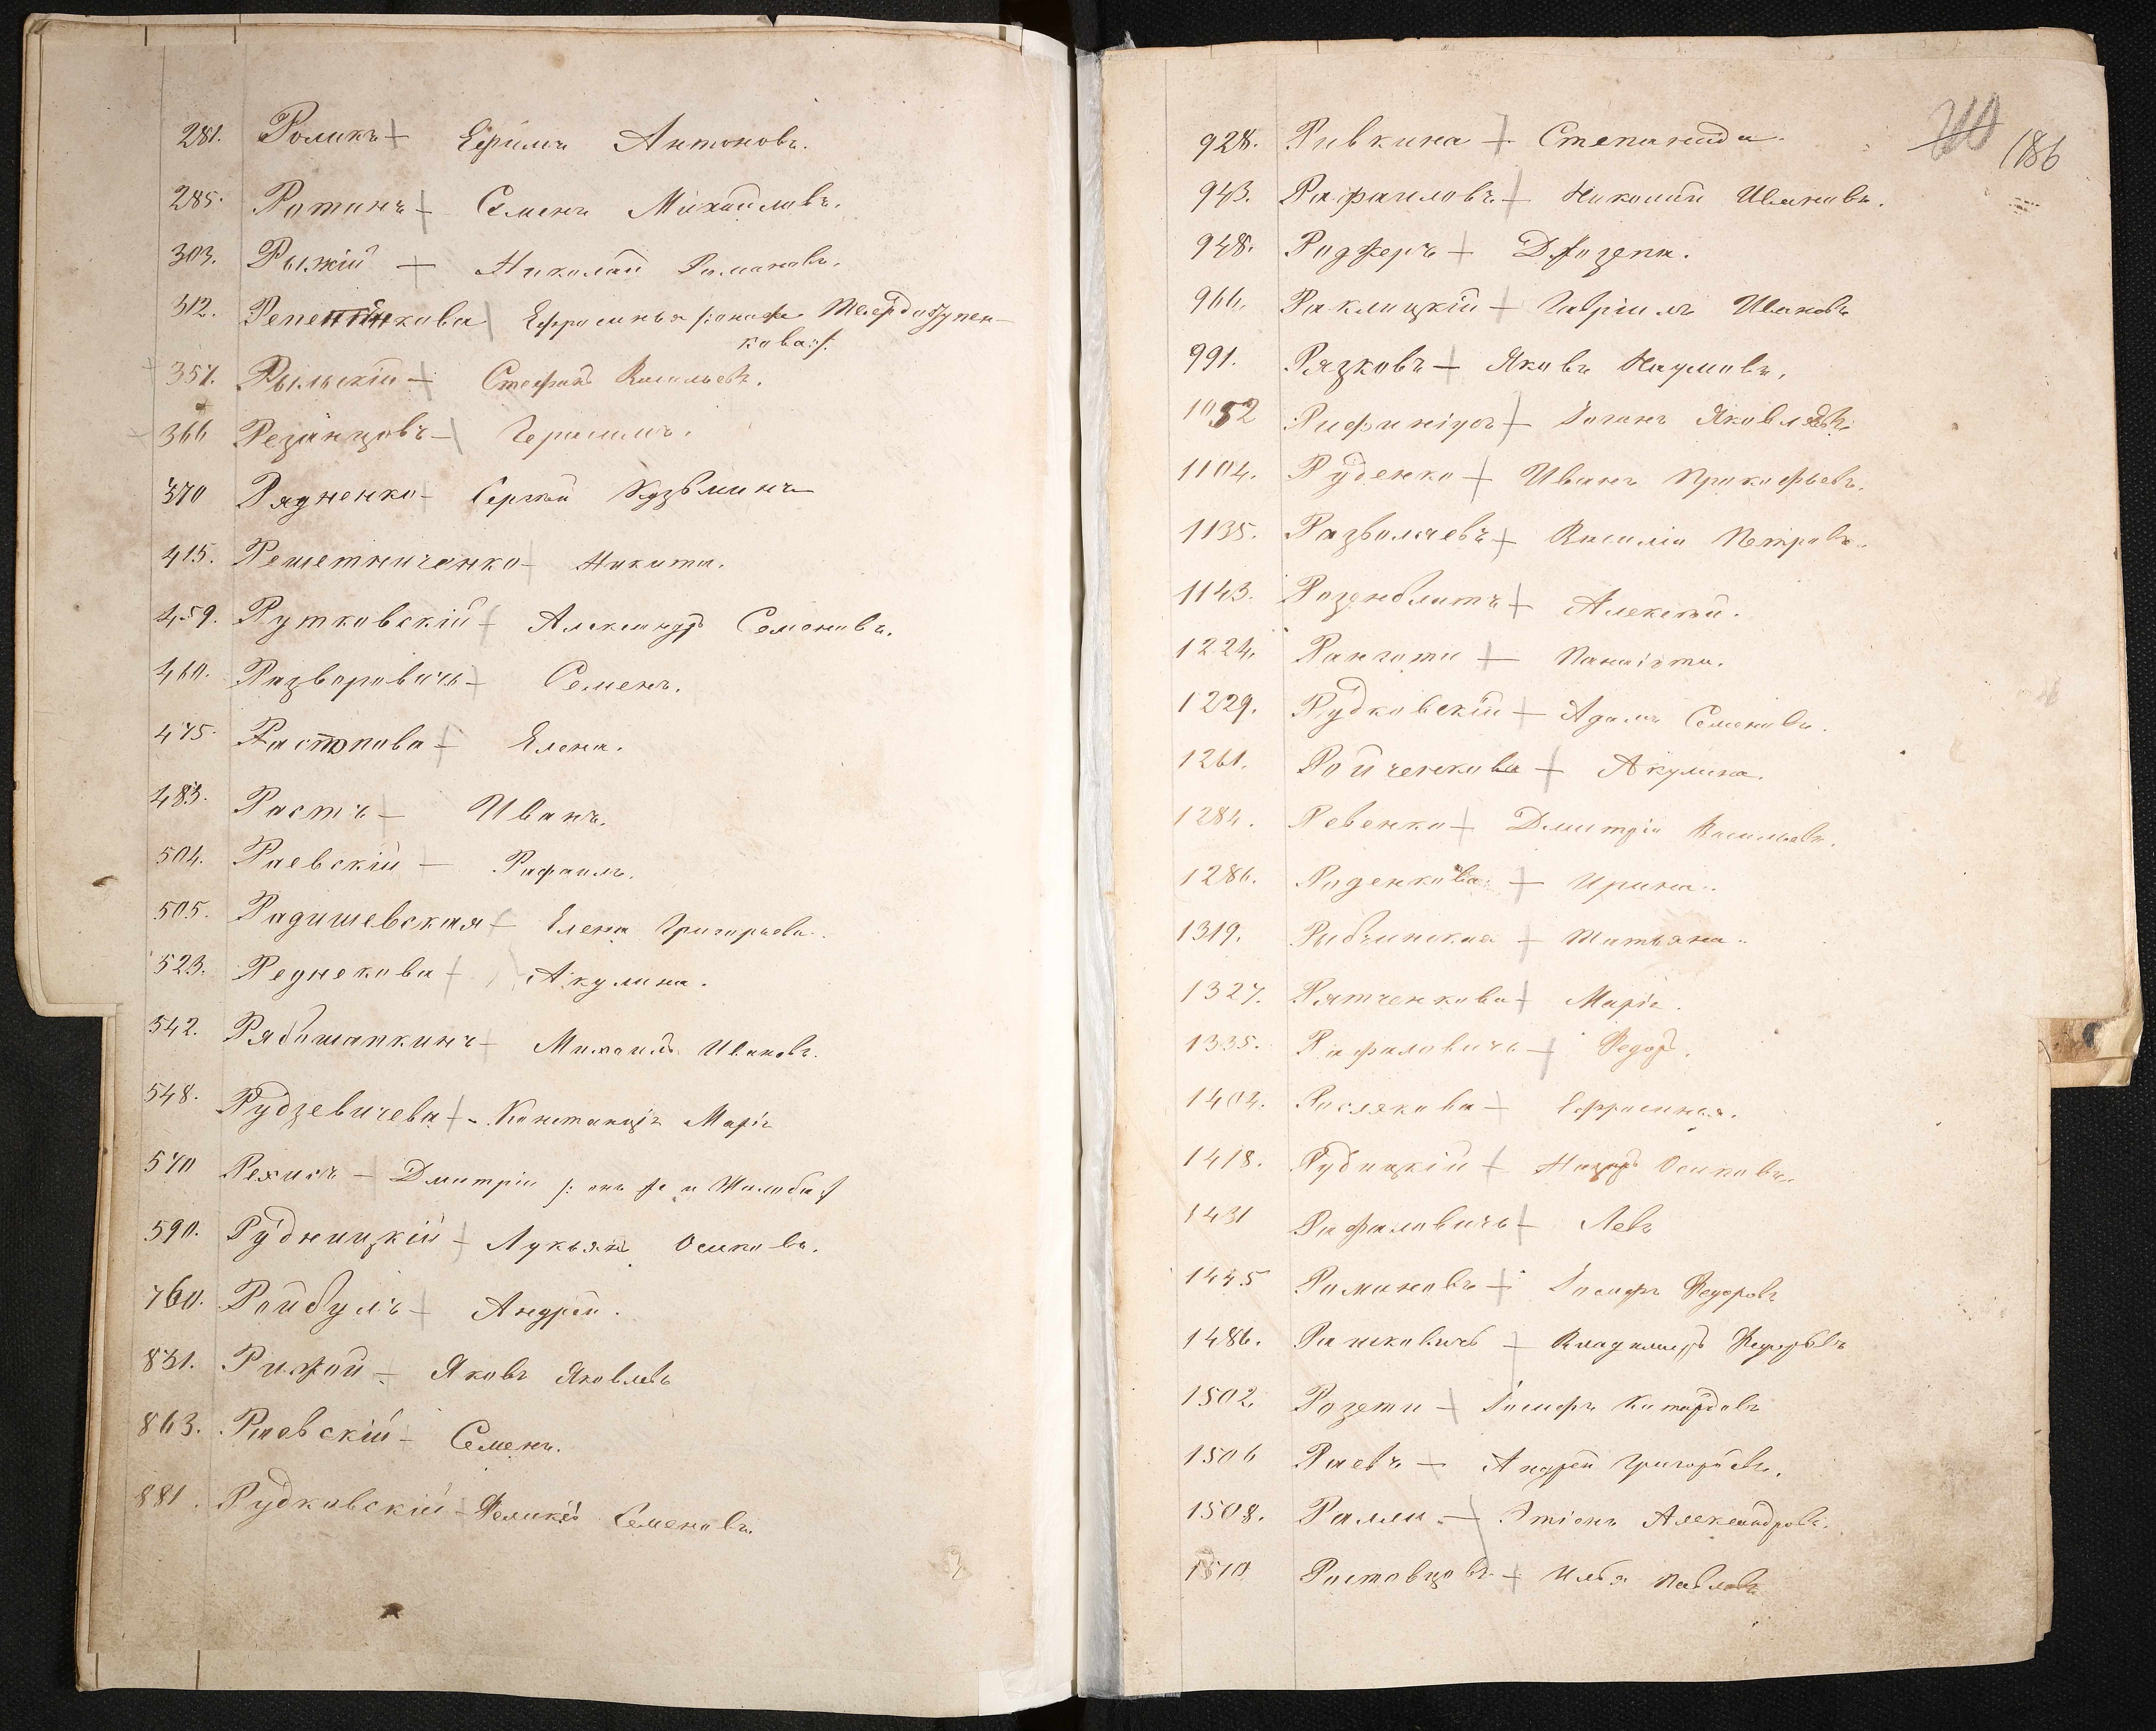 281. Роликъ Ефимъ Антоновъ.
285. Ротинъ Семенъ Михайловъ.
303. Рыжій — Николай Романовъ.
312. Ефросинья /: она же Твердоступен-
кова :/.
357. Рыльскій Стефанъ Васильевъ.
366 Резанцовъ Герасимъ.
370 Рядненко Сергѣй Кузьминъ
415. Решетниченко Никита.
459. Рутковскій Александръ Семеновъ.
460. Разворовичъ Семенъ.
475. Растопова Елена.
483. Растъ — Иванъ.
504. Раевскій — Рафаилъ.
505. Радишевская Елена Григорьева.
523. Реднекова Акулина.
542. Рябошапкинъ Михаилъ Ивановъ.
548. Рудзевичева Констанція Марія
570 — Дмитрій /: онъ же и
590. Рудницкій Лукьянъ Осиповъ.
760. Ройбулъ Андрей.
831. Рижой Яковъ Яковлевъ
863. Раевскій Семенъ.
881. Рудковскій Феликсъ Семеновъ.
210 186
928. Ривкина Степанида.
943. Рафаиловъ Николай Ивановъ.
948. Роджеръ Джозепъ.
966. Раклицкій Гавріилъ Ивановъ
991. Рязковъ Яковъ Наумовъ.
1052 Іоганъ Яковлевъ
1104. Руденко Иванъ Прокофьевъ.
1135. Разволяевъ Василій Петровъ.
1143. Розенблитъ Алексѣй.
1224. Ранготи
1229. Рудковскій Адамъ Семеновъ.
1261. Ройченкова Акулина.
1284. Ревенко Дмитрій Васильевъ.
1286. Роденкова Ирина.
1319. Рибчинская Татьяна.
1327. Рятченкова Марія.
1335. Рафаловичъ Федоръ.
1404. Рослякова Ефросинья.
1418. Рубицкій Назаръ Осиповъ.
1431 Рафаловичъ Левъ
1445 Романовъ Іосифъ Федоровъ
1486. Рашковичъ Владимиръ Федоровъ
1502. Розети Іосифъ
1506 Раевъ — Андрей Григорьевъ.
1508. Ралли Этіенъ Александровъ.
1510 Ростовцовъ Илья Павловъ